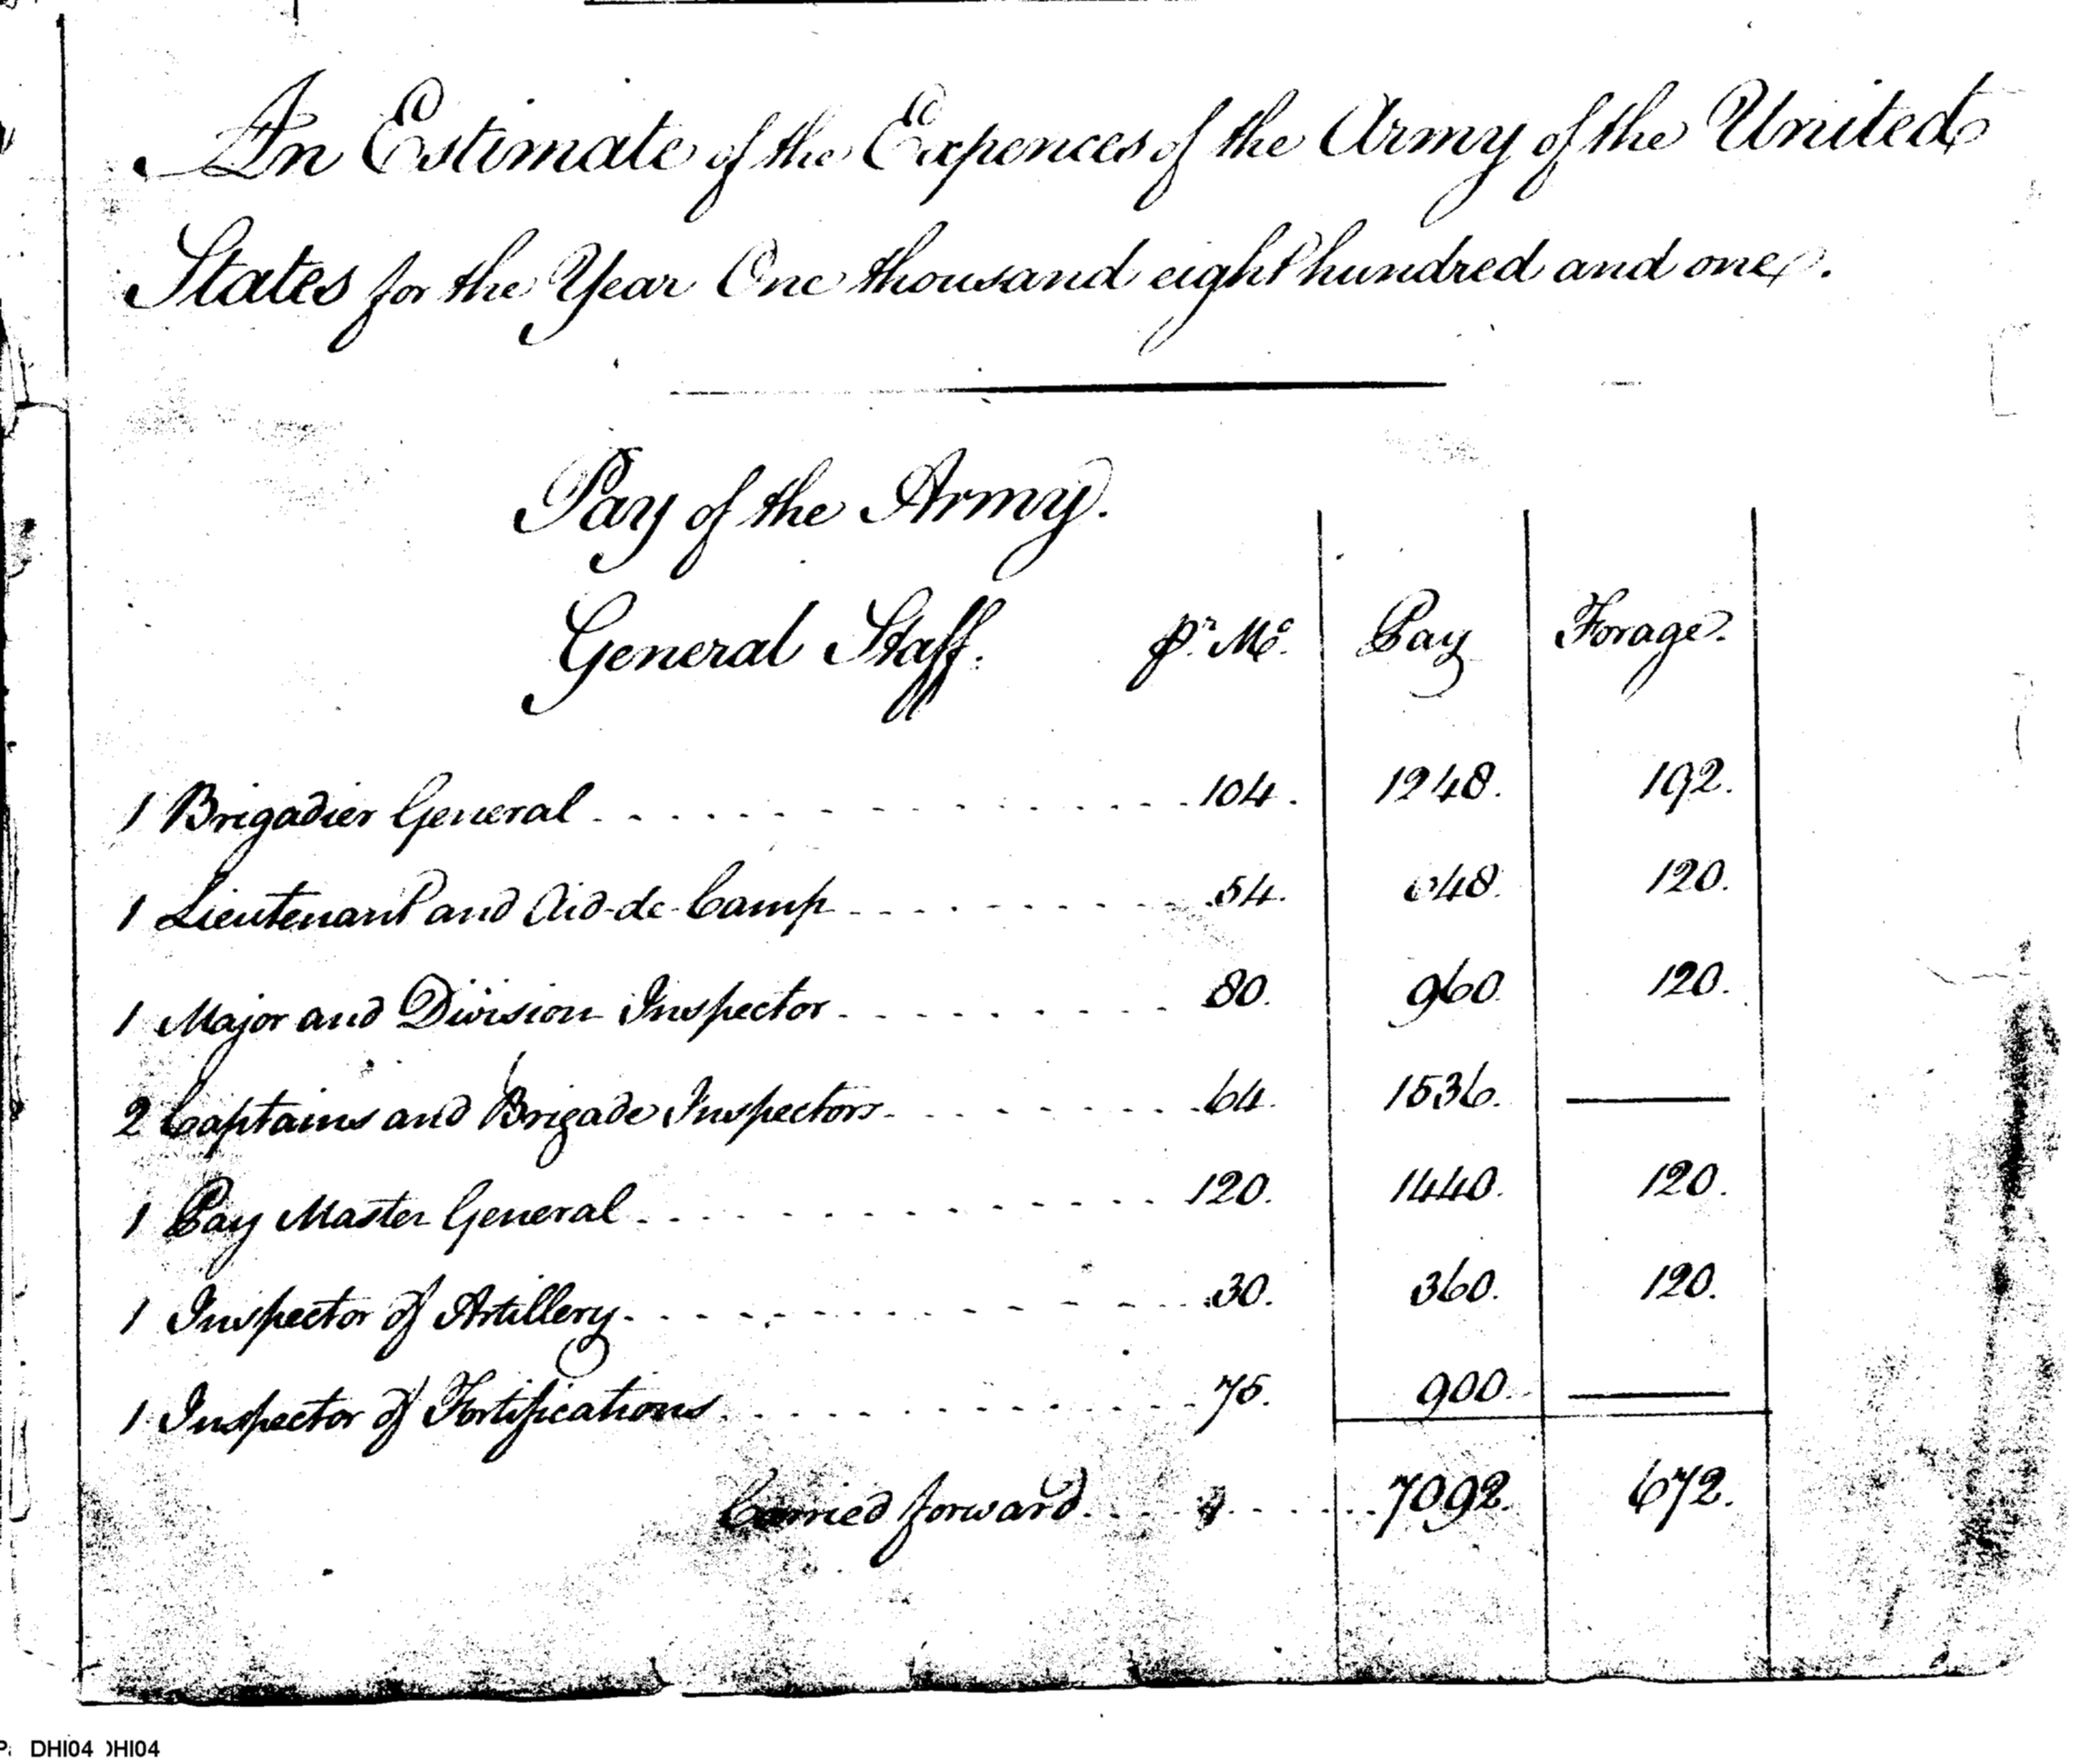 An Estimate of the Expences of the Army of the United
States for the Year One thousand eight hundred and one.
Pay of the Army.
General Staff. pr. Mo. Pay Forage.
1 Brigadier General 104. 1248. 192.
1 Lieutenant and Aid-de-Camp 54. 648. 120.
1 Major and Division Inspector 80. 960. 120.
2 Captains and Brigade Inspectors 64. 1536. —
1 Pay Master General 120. 1440. 120.
1 Inspector of Artillery 30. 360. 120.
1 Inspector of Fortifications 75. 900. —
Carried forward 7092. 672.
DHI04 DHI04